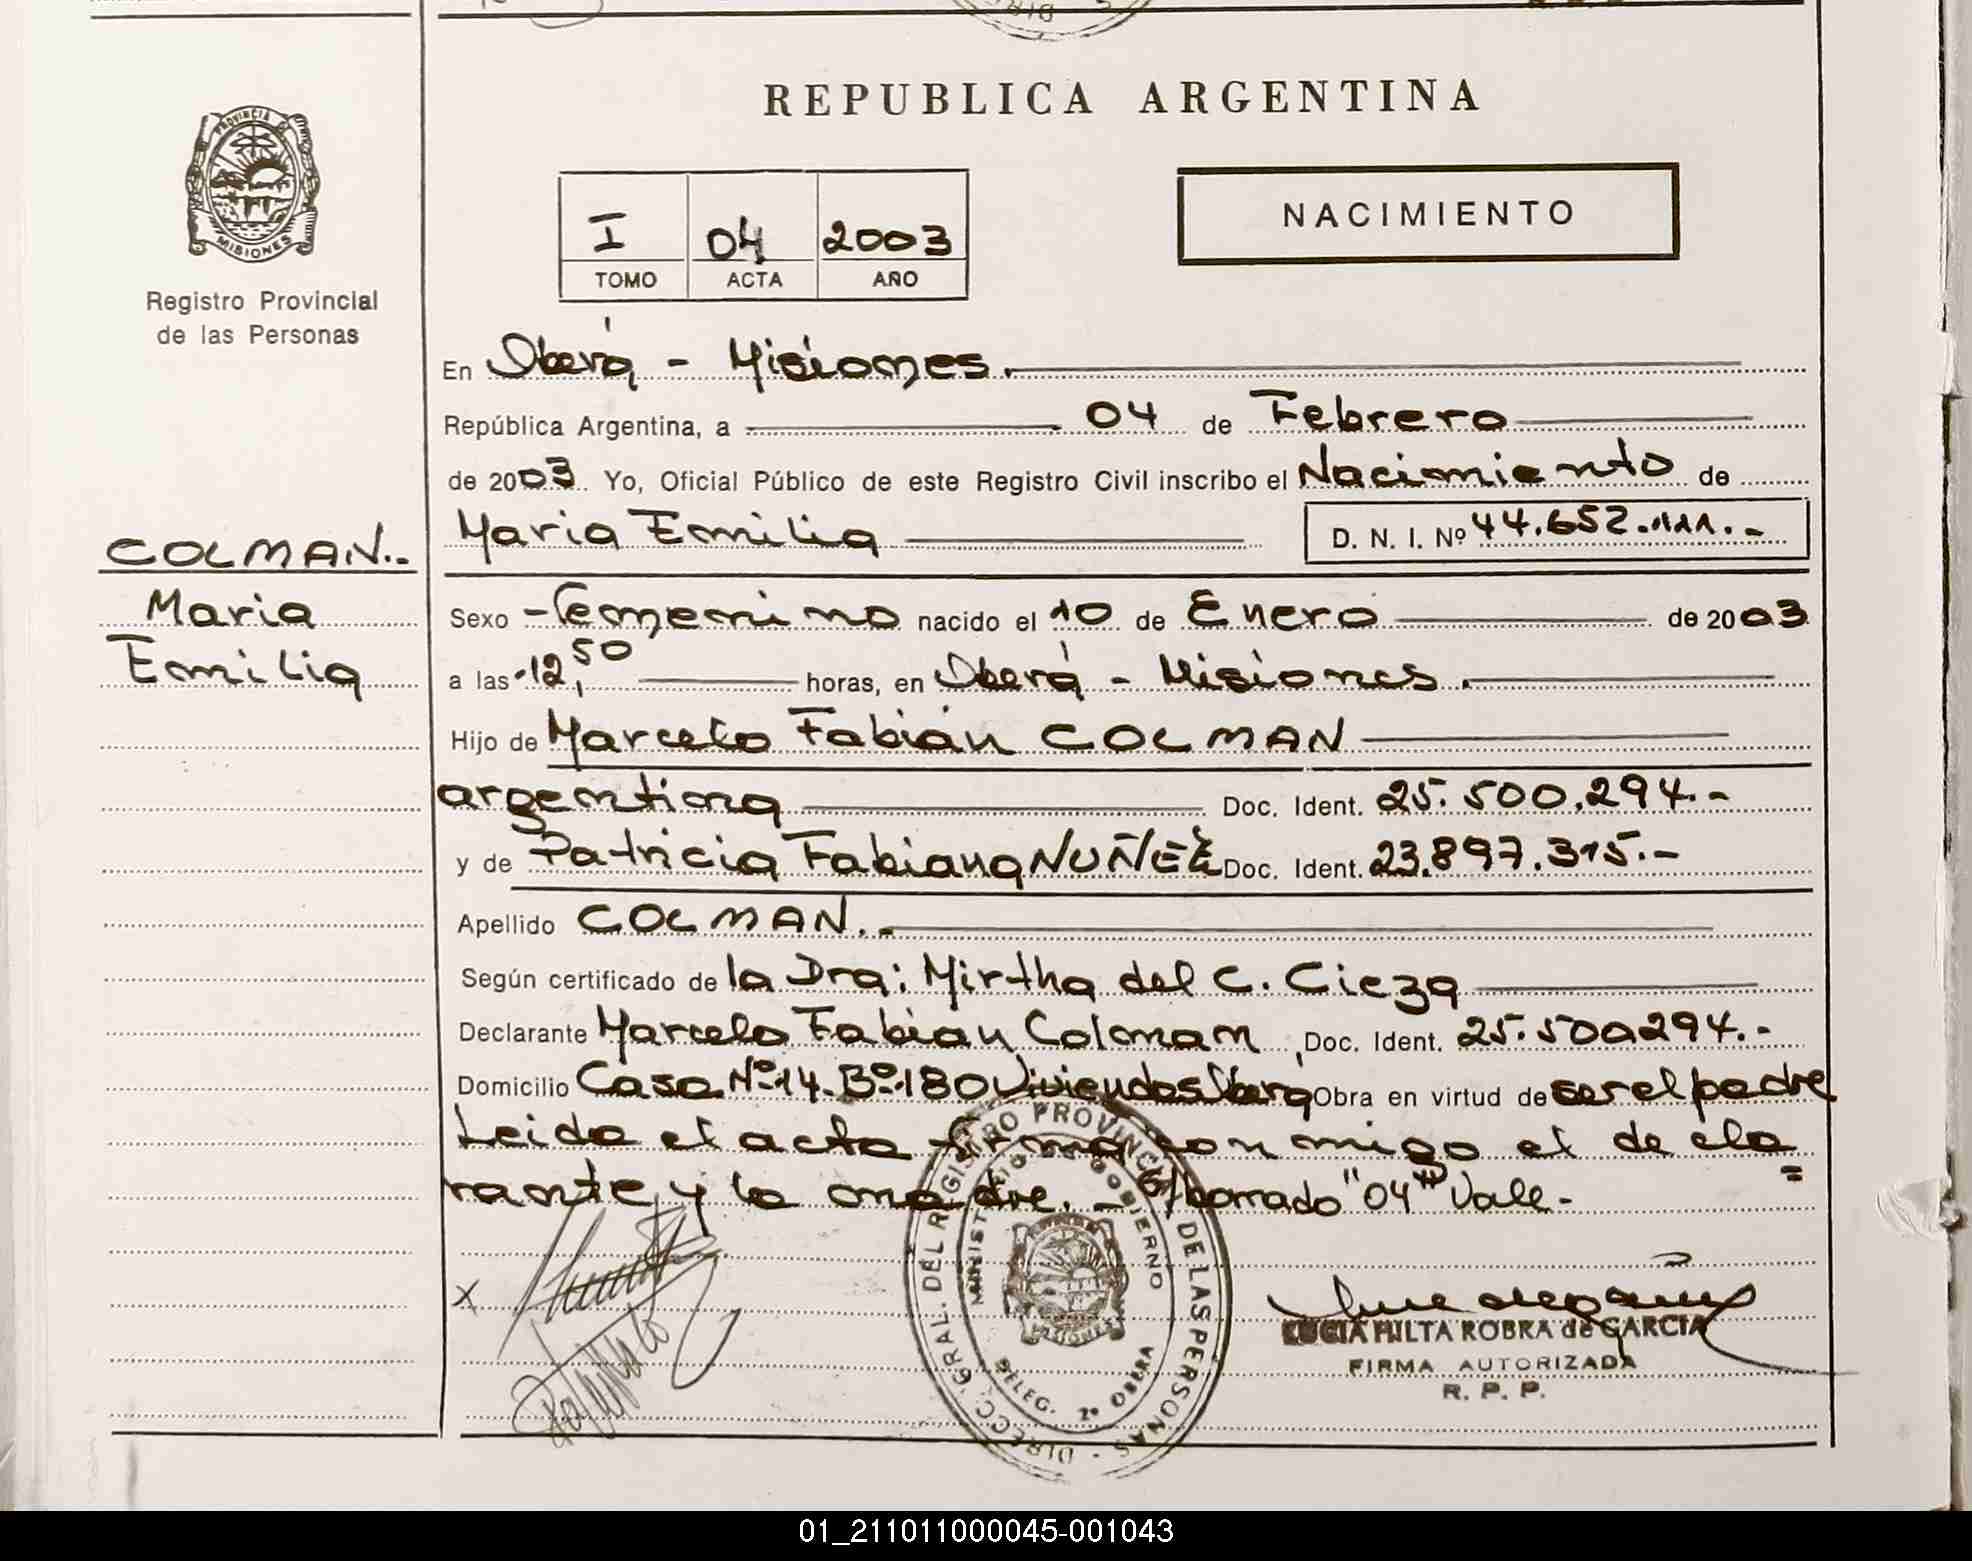 REPUBLICA ARGENTINA
PROVINCIA DE
MISIONES
Registro Provincial
de las Personas
I 04 2003
TOMO ACTA AÑO
NACIMIENTO
En Oberá - Misiones.
República Argentina, a 04 de Febrero
de 2003. Yo, Oficial Público de este Registro Civil inscribo el Nacimiento de
Maria Emilia D. N. I. Nº 44.652.111.-
COLMAN.-
Maria
Emilia
Sexo -femenino nacido el 10 de Enero de 2003
a las 12,50 horas, en Oberá - Misiones.
Hijo de Marcelo Fabián COLMAN
argentina Doc. Ident. 25.500.294.-
y de Patricia Fabiana NUÑEZ Doc. Ident. 23.897.315.-
Apellido COLMAN.-
Según certificado de la Dra: Mirtha del C. Cieza
Declarante Marcelo Fabian Colman, Doc. Ident. 25.500294.-
Domicilio Casa Nº14-Bº180 Viviendas Oberá Obra en virtud de ser el padre
Leido el acta firma con migo el decla
rante y la madre.- S/borrado "04" Vale-
X
DIRECC. GRAL. DEL REGISTRO PROVINCIAL DE LAS PERSONAS -
MINISTERIO DE GOBIERNO
MISIONES
DELEG. 2º OBERA
ROBRA de GARCIA
FIRMA AUTORIZADA
R. P. P.
01_211011000045-001043